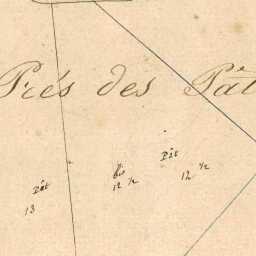 Prés des Pât
Pât
13
bis
12 ½
Pât
12 ½